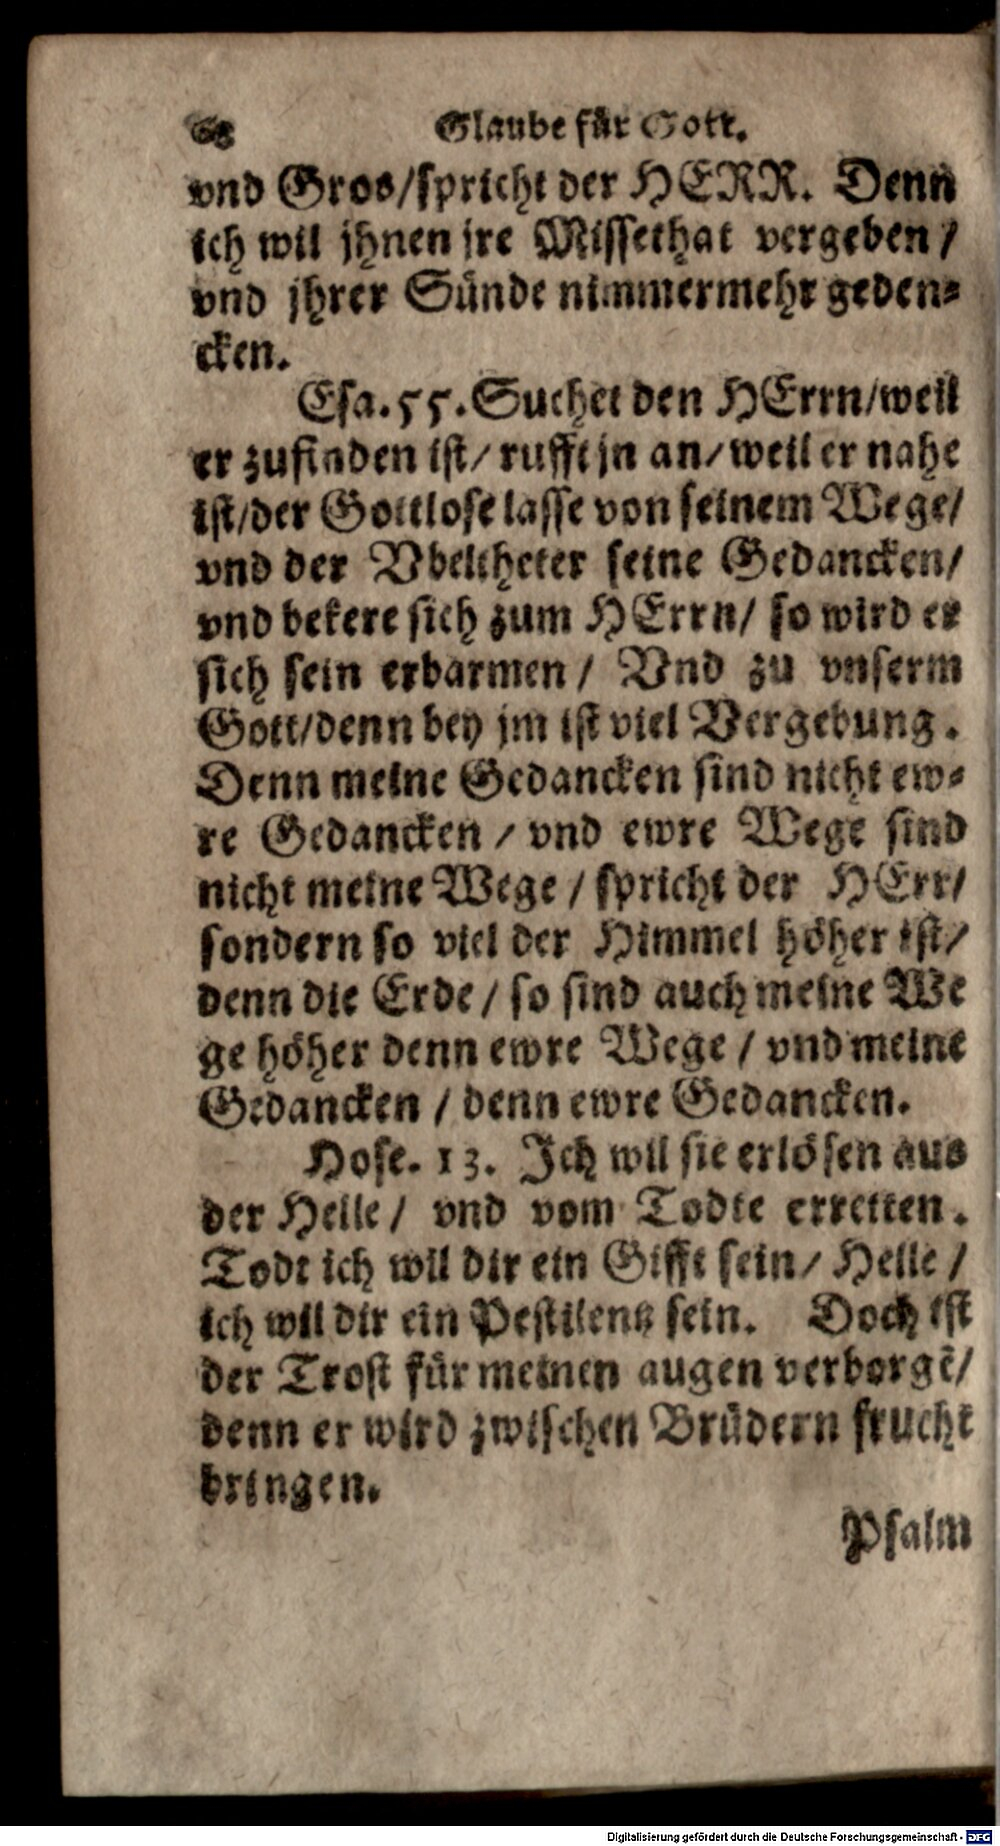 68 Glaube für Gott.
vnd Gros/spricht der HERR. Denn
ich wil jhnen jre Missethat vergeben/
vnd jhrer Sünde nimmermehr geden⸗
cken.
Esa. 55. Suchet den HErrn/weil
er zufinden ist/ rufft jn an/weil er nahe
ist/der Gottlose lasse von seinem Wege/
vnd der Vbeltheter seine Gedancken/
vnd bekere sich zum HErrn/ so wird er
sich sein erbarmen/ Vnd zu vnserm
Gott/denn bey jm ist viel Vergebung.
Denn meine Gedancken sind nicht ew⸗
re Gedancken / vnd ewre Wege sind
nicht meine Wege / spricht der HErr/
sondern so viel der Himmel höher ist/
denn die Erde / so sind auch meine We
ge höher denn ewre Wege / vnd meine
Gedancken / denn ewre Gedancken.
Hose. 13. Jch wil sie erlösen aus
der Helle/ vnd vom Todte erretten.
Todt ich wil dir ein Gifft sein/ Helle /
ich wil dir ein Pestilentz sein. Doch ist
der Trost für meinen augen verborgẽ/
denn er wird zwischen Brüdern frucht
bringen.
Psalm
Digitalisierung gefördert durch die Deutsche Forschungsgemeinschaft - DFG